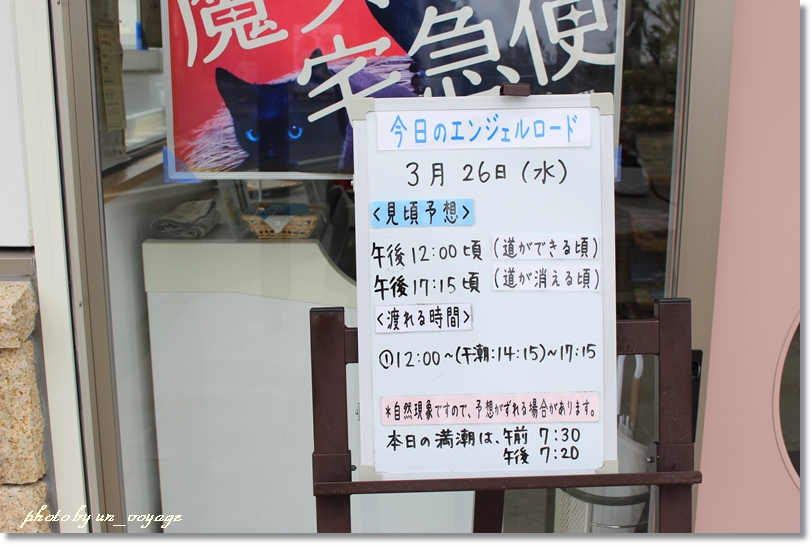 魔女
宅急便
今日のエンジェルロード
3月 26日(水)
<見頃予想>
午後12:00頃 (道ができる頃)
午後17:15頃 (道が消える頃)
<渡れる時間>
①12:00~(干潮:14:15)~17:15
*自然現象ですので、予想がずれる場合があります。
本日の満潮は、午前 7:30
午後 7:20
photo by un_voyage